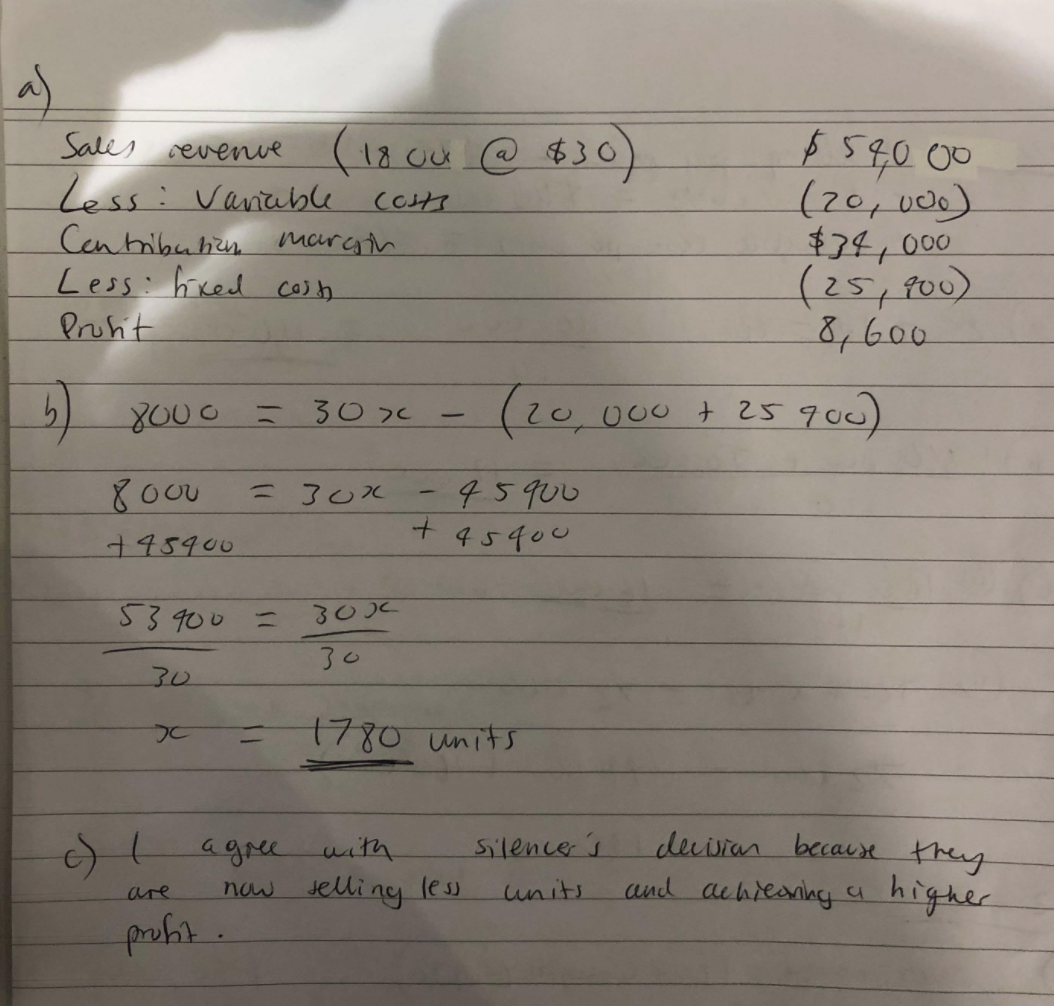 a)
Sales revenue (1800 @ $30) $54,000
Less: Variable costs (20,000)
Contribution margin $34,000
Less: fixed costs (25,400)
Profit 8,600
b) 8000 = 30x - (20,000 + 25 400)
8000 = 30x - 45400
+45400 + 45400
53400 = 30x
30 30
x = 1780 units
c) I agree with silencer's decision because they
are now selling less units and achieving a higher
profit.